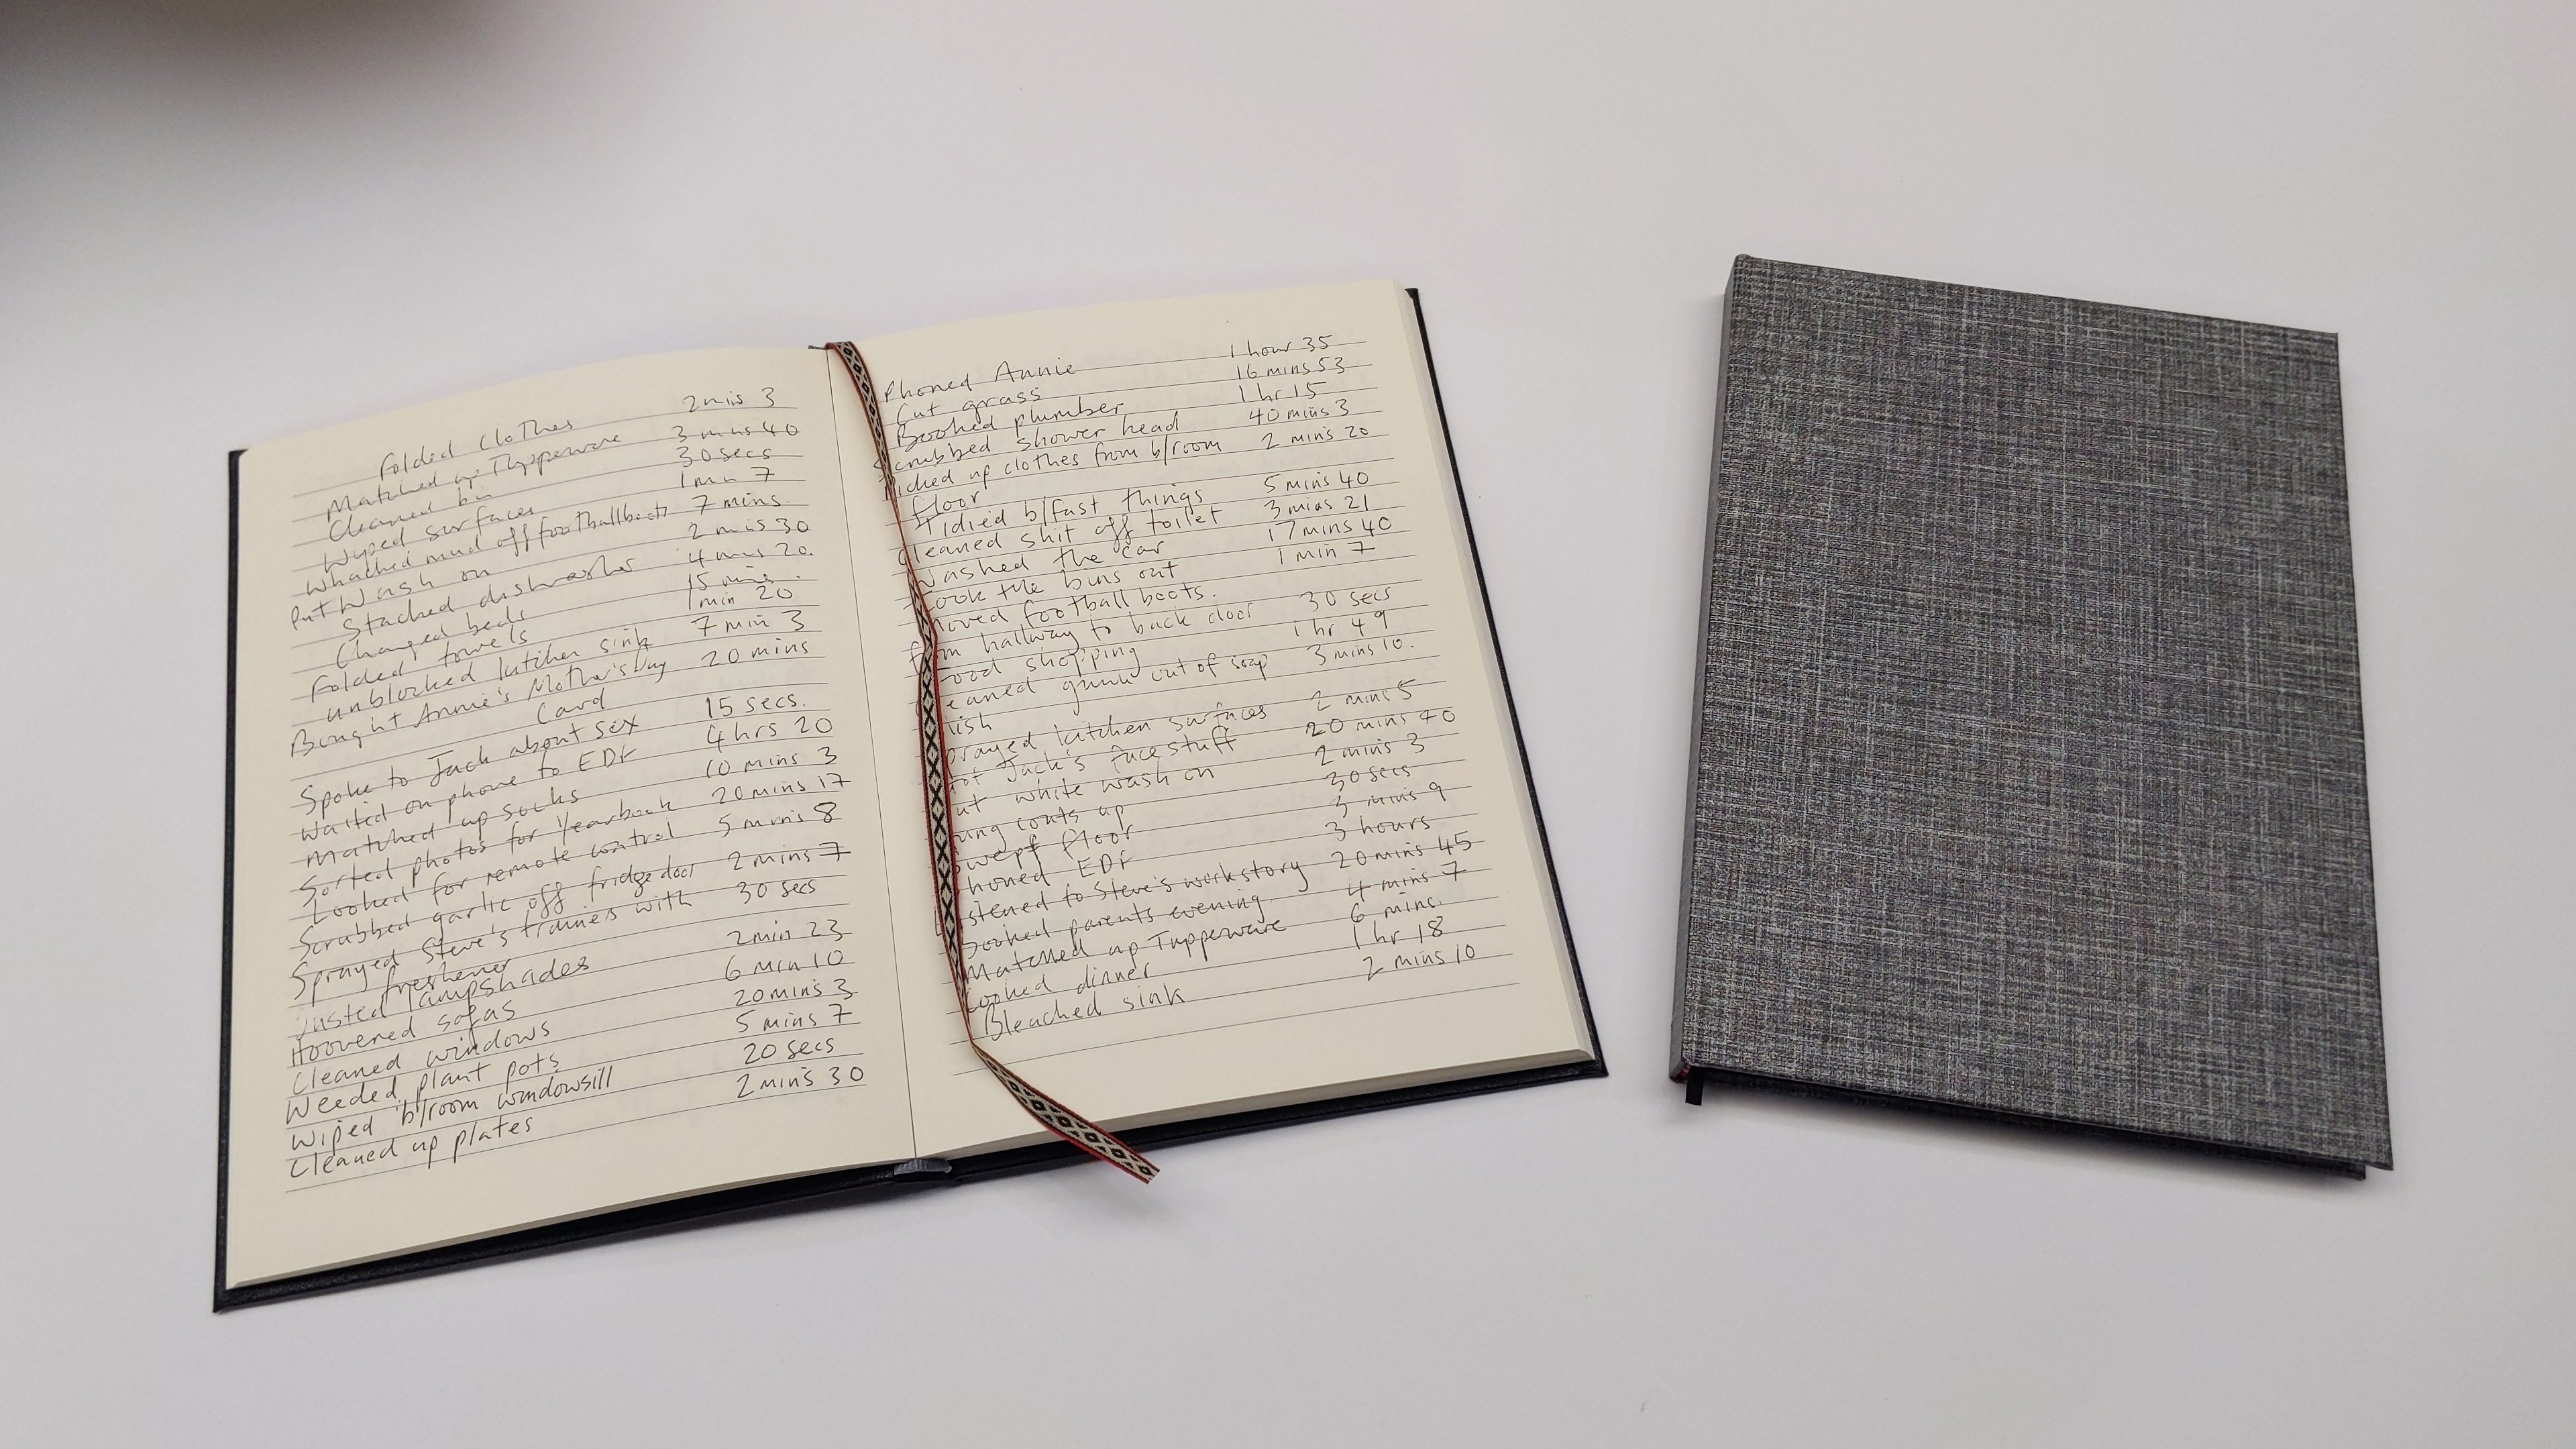 Folded clothes 2 mis 3
Matched up Tupperware 3 mins 40
Cleaned bin 30 secs
Wyped surfaces 1 min 7
Whacked mud off football boots 7 mins.
Put Wash on 2 mis 30
Stacked dishwasher 4 mis 20.
Changed beds 15 mins.
Folded towels 1 min 20
unblocked kitchen sink 7 min 3
Bought Annie's Mother's Day 20 mins
Card
Spoke to Jack about sex 15 secs.
Waited on phone to EDF 4 hrs 20
Matched up socks 10 mins 3
Sorted photos for Yearbook 20 mins 17
Looked for remote control 5 mins 8
Scrubbed garlic off fridge door 2 mins 7
Sprayed Steve's trainers with 30 secs
freshener
Dusted lampshades 2 min 23
Hoovered sofas 6 min 10
Cleaned windows 20 mins 3
Weeded plant pots 5 mins 7
Wiped b/room windowsill 20 secs
Cleaned up plates 2 mins 30
Phoned Annie 1 hour 35
Cut grass 16 mins 53
Booked plumber 1 hr 15
Scrubbed shower head 40 mins 3
Picked up clothes from b/room 2 mins 20
floor
Tidied b/fast things 5 mins 40
Cleaned shit off toilet 3 mins 21
Washed the car 17 mins 40
Took the bins out 1 min 7
moved football boots.
from hallway to back door 30 secs
Food shopping 1 hr 49
eaned gunk out of soap 3 mins 10.
dish
prayed kitchen surfaces 2 mins 5
Got Jack's face stuff 20 mins 40
ut white wash on 2 mins 3
ung coats up 30 secs
Swept floor 3 mins 9
honed EDF 3 hours
Listened to Steve's work story 20 mins 45
Booked parents evening. 4 mins 7
Matched up Tupperware 6 mins.
Cooked dinner 1 hr 18
Bleached sink 2 mins 10